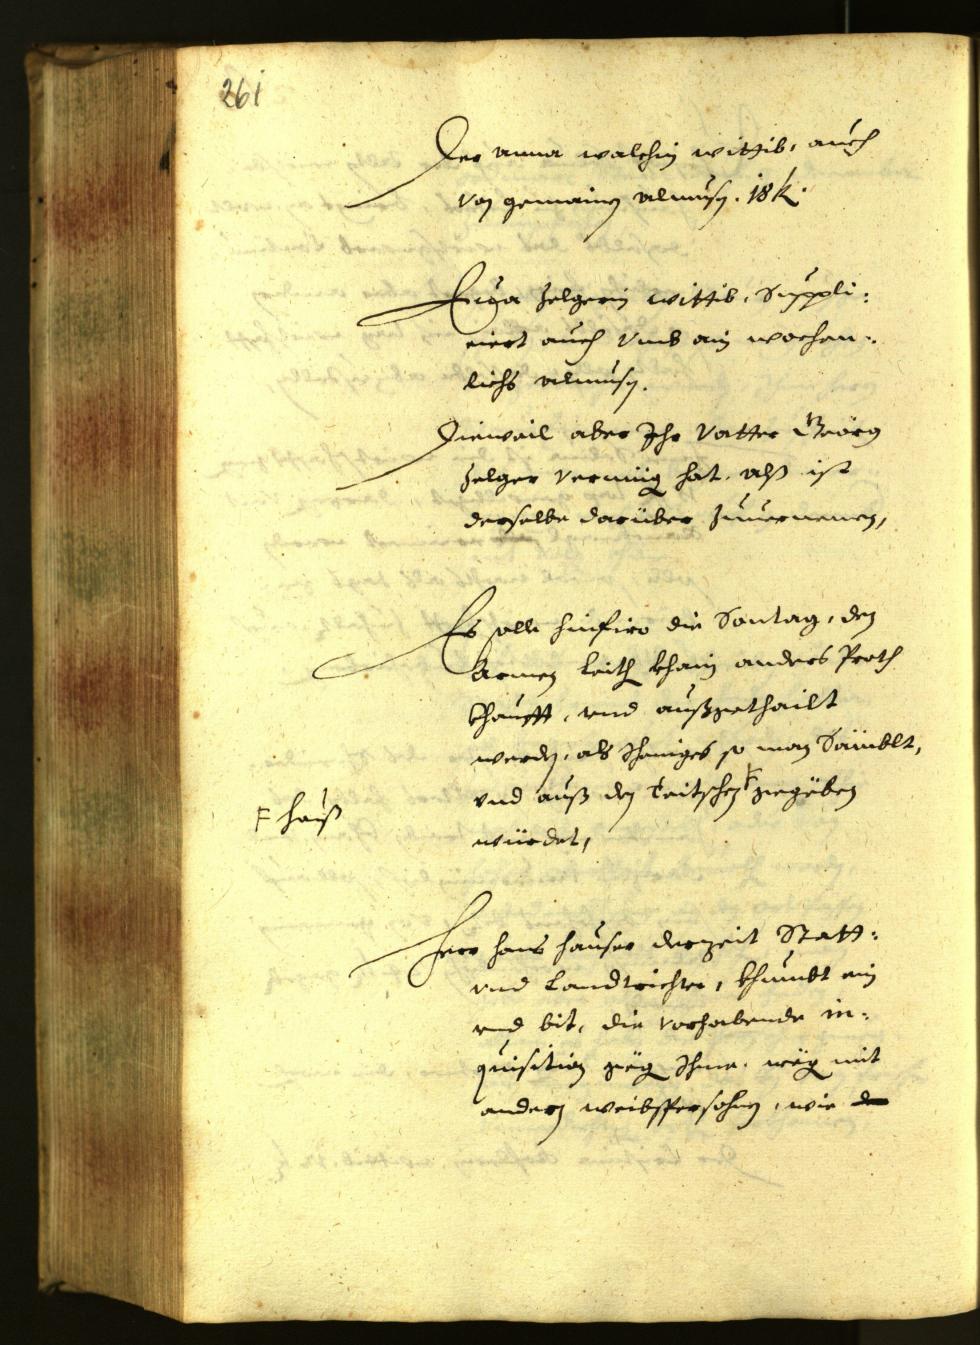 261
Der anna walchin wittib, auch
von gemainen almusen. 18 k.
Euga Zelgerin wittib, Suppli:
ciert auch vmb ain wochen:
lichs almusen.
Dieweil aber Ihr Vatter Georg
Zelger vermüg hat, alß ist
derselbe darüber zuuernemen,
Es solle hinfiro die Sontag, den
Armen leith khain anders Proth
khaufft, vnd außgethailt
werden, als Iheniges so man Sämblt,
vnd auß den Teitschen F gegeben
würdet,
F hauß
Herr hans hauser derzeit Statt:
vnd Landtrichter, khumbt ein
vnd bit, die vorhabende in:
quisition gegen Ihme, wegen mit
andern weibspersohnen, wie